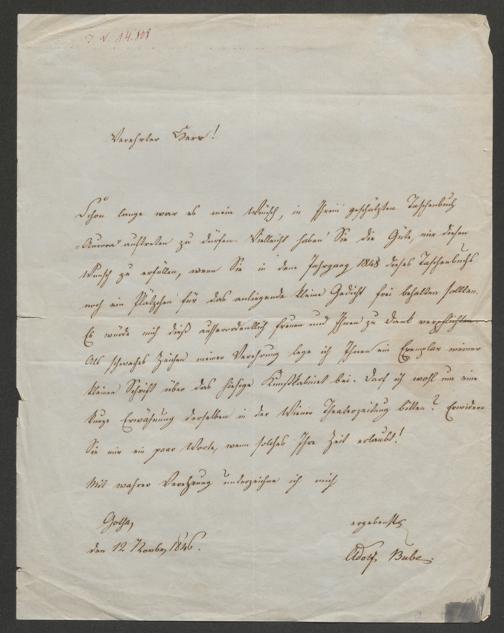 I. N. 14.808
Verehrter Herr!
Schon lange war es mein Wunsch, in Ihrem geschätzten Taschenbuch
Aurora auftreten zu dürfen. Vielleicht haben Sie die Güte, mir diesen
Wunsch zu erfüllen, wenn Sie in dem Jahrgang 1848 dieses Taschenbuchs
noch ein Plätzchen für das anliegende kleine Gedicht frei behalten sollten.
Es würde mich dieß außerordentlich freuen und Ihnen zu Dank verpflichten.
Als schwaches Zeichen meiner Verehrung lege ich Ihnen ein Exemplar meiner
kleinen Schrift über das hiesige Kunstkabinet bei. Darf ich wohl um eine
kurze Erwähnung derselben in der Wiener Theaterzeitung bitten? Erwidern
Sie mir ein paar Worte, wenn solches Ihre Zeit erlaubt!
Mit wahrer Verehrung unterzeichne ich mich
Gotha, ergebenst
den 12 Novbr. 1846. Adolf Bube.